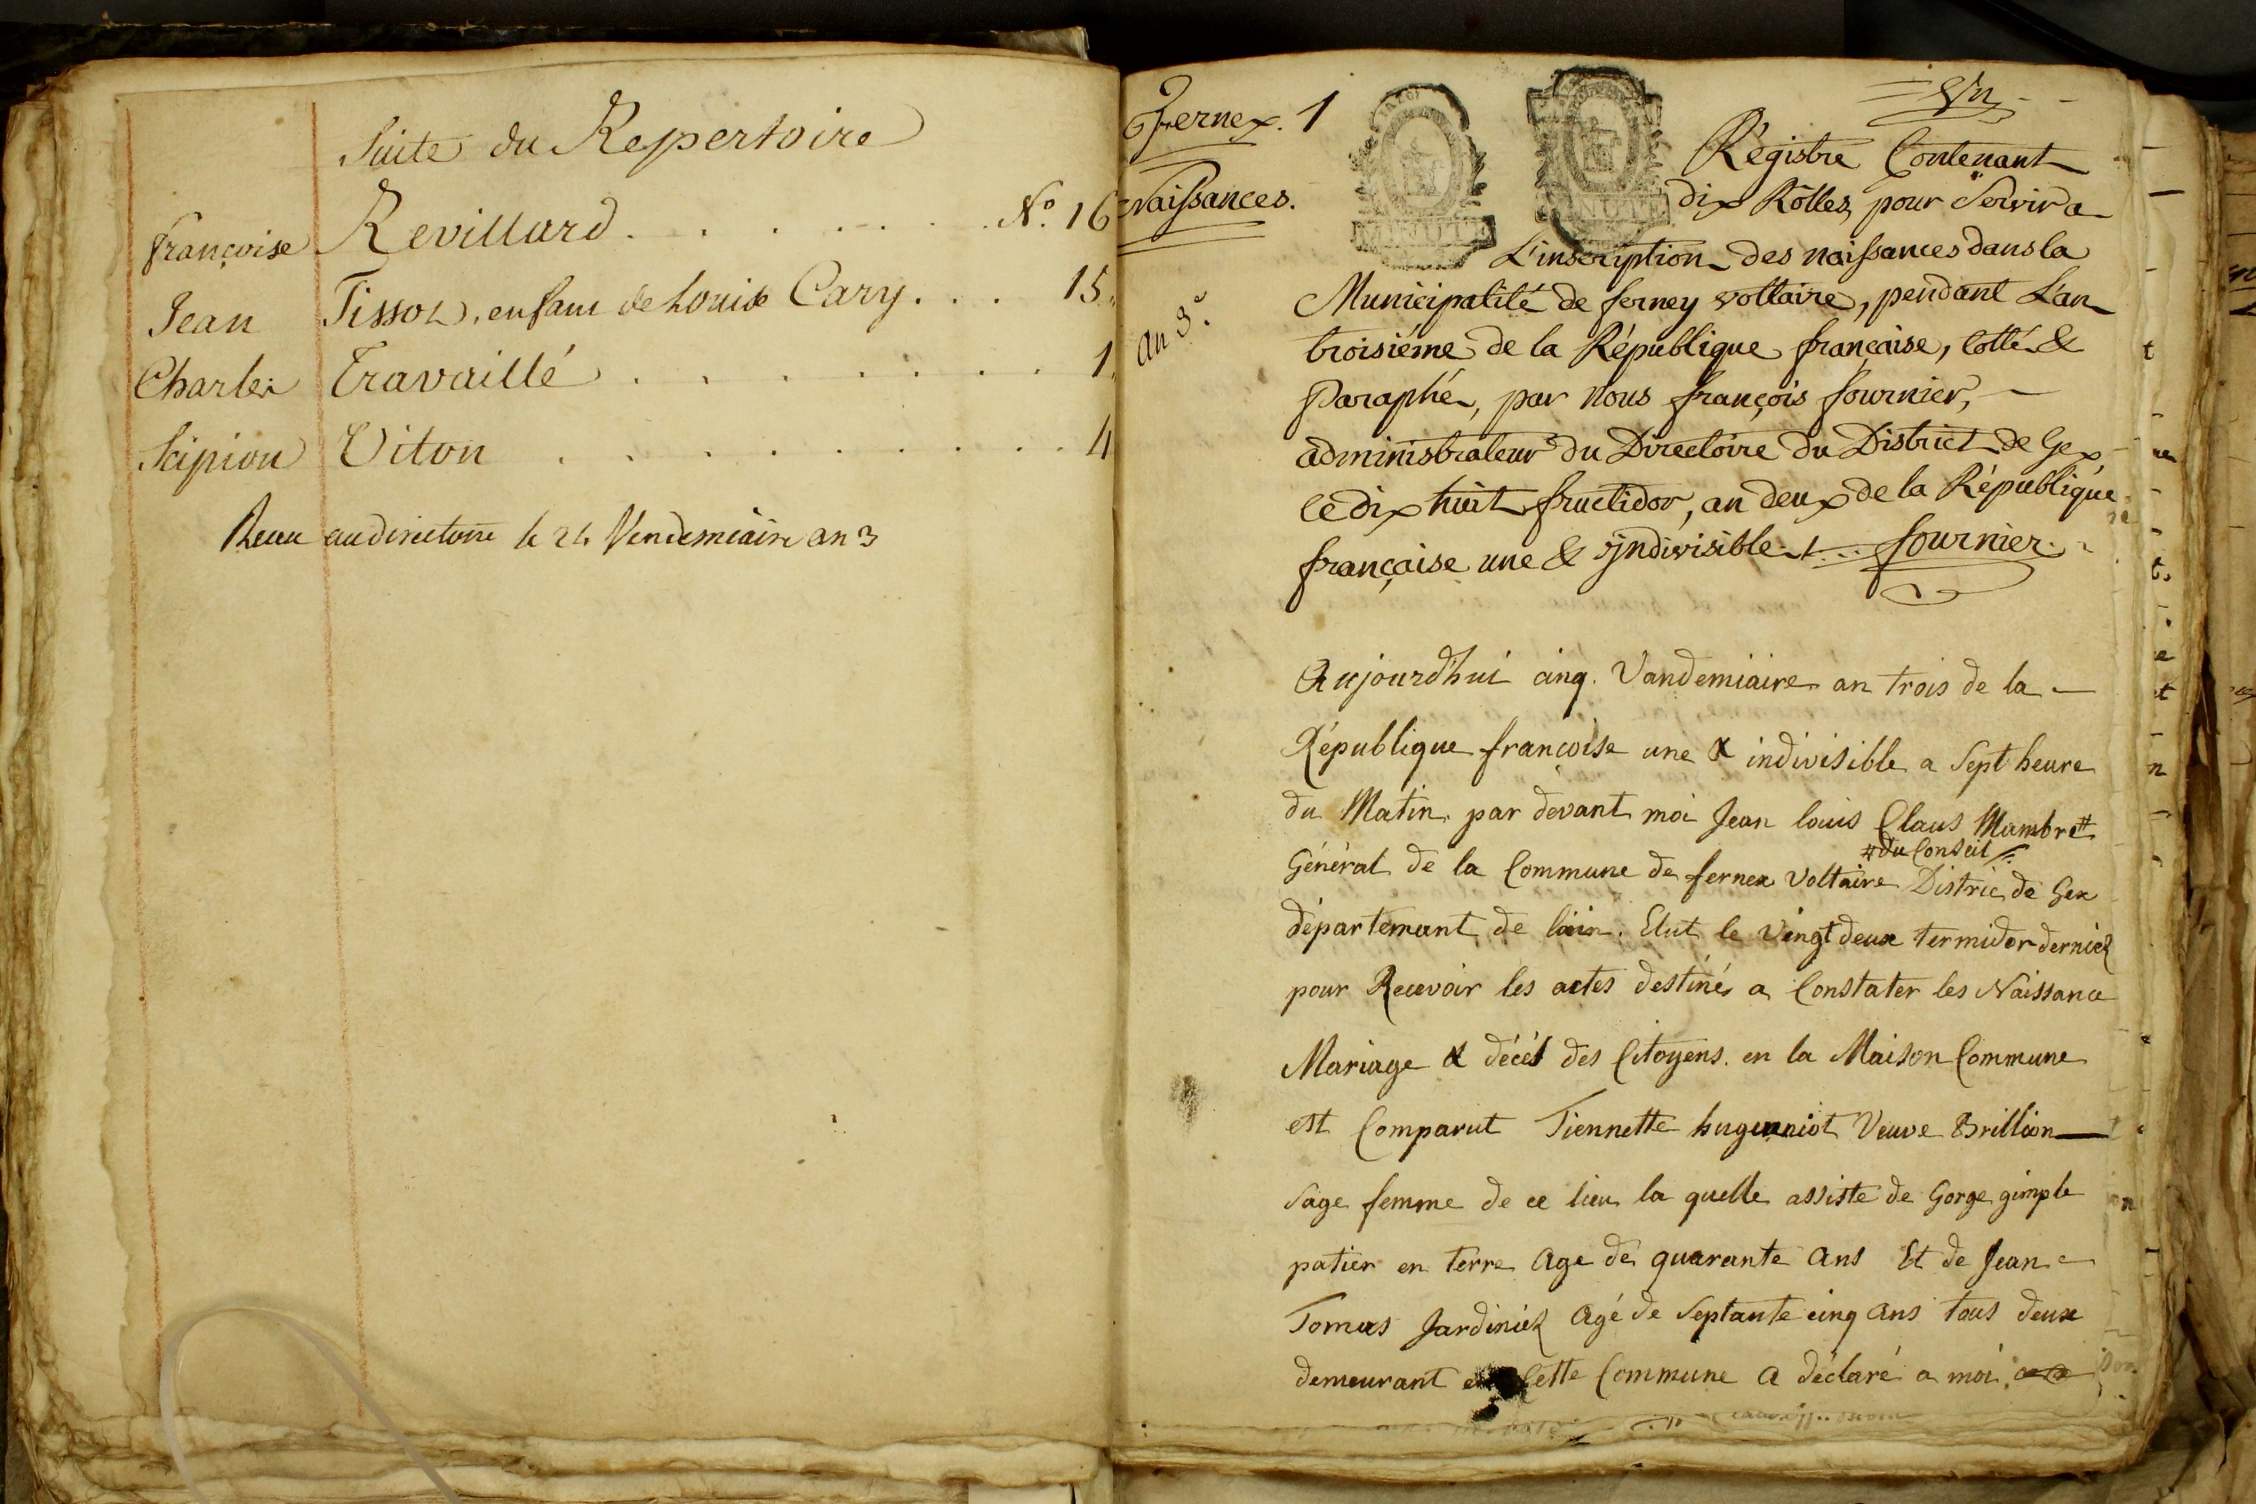 Suite du Repertoire
françoise Revillard . . . . . . . . No. 16
Jean Tissot, enfant de Louise Cary . . . 15.
Charles Travaillé . . . . . . . 1.
Scipion Viton . . . . . . . . . . 4
Receu au directoire le 24 Vendemiaire an 3
Fernex. 1
Naissances.
an 3e.
Un
MINUTE
MINUTE
Régistre Contenant
dix Rôlles, pour Servir a
L'inscription des naissances dans la
Municipalité de ferney voltaire, pendant L'an
troisiéme de la République française, Cotté &
Paraphé, par nous françois fournier,
administrateur du Directoire du District de Gex
le dix huit fructidor, an deux de la République
française une & indivisible. fournier.
Aujourd'hui cinq Vandemiaire an trois de la
République francoise une & indivisible a Sept heure
du Matin par devant moi Jean louis Claus Mambre #
# du Conseil
Général de la Commune de fernex Voltaire Distric de Gex
départemant de lain. Elut le Vingt deux termidor derniér
pour Recevoir les actes destinés a Constater les Naissance
Mariage & décés des Citoyens. en la Maison Commune
est Comparut Tiennette hugueniot Veuve Brillion
Sage femme de ce lieu la quelle assiste de Gorge gimple
patier en terre Age de quarante ans Et de Jean
Tomas Jardiniér Agé de Septante cinq ans tous deux
demeurant Cette Commune a déclaré a moi